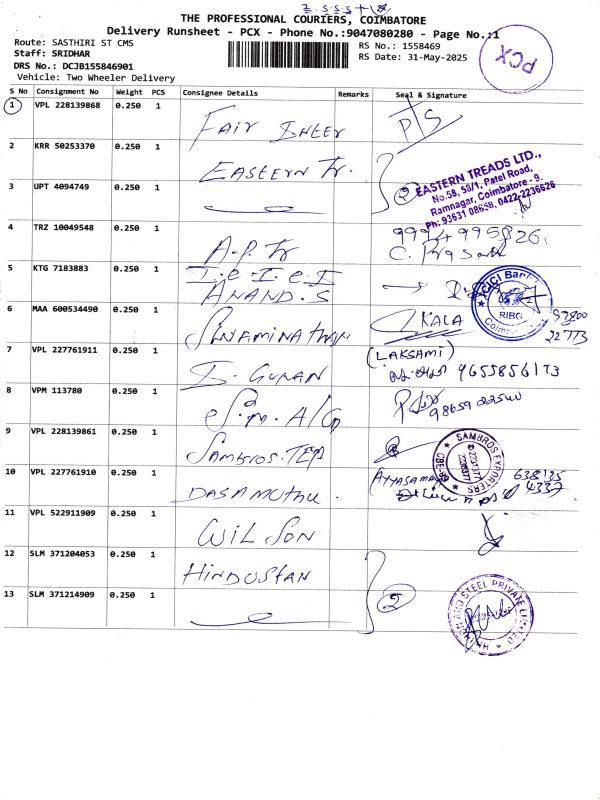 THE PROFESSIONAL COURIERS, COIMBATORE
Delivery Runsheet - PCX - Phone No.:9047080280 - Page No.:1
Route: SASTHIRI ST CMS
Staff: SRIDHAR
DRS No.: DCJB155846901
Vehicle: Two Wheeler Delivery
RS No.: 1558469
RS Date: 31-May-2025
PCX
S No Consignment No Weight PCS Consignee Details Remarks Seal & Signature
1 VPL 228139868 0.250 1 FAIR INTER
2 KRR 50253370 0.250 1 EASTERN Tr. 2
EASTERN TREADS LTD.,
No.58, 55/1, Patel Road,
Ramnagar, Coimbatore - 9.
Ph: 93631 08658, 0422-2236626
3 UPT 4094749 0.250 1
4 TRZ 10049548 0.250 1 A.P. Tr
C. Prasath
5 KTG 7183883 0.250 1 I.C.I.C.I
ANAND.S
ICICI Bank
RIBG
6 MAA 600534490 0.250 1 SIWAMINATHAN KALA
7 VPL 227761911 0.250 1 S. GUNAN (LAKSAMI)
9655856173
8 VPM 113780 0.250 1 S.M. A/G
9 VPL 228139861 0.250 1 SAMBROS.TEA
SAMBROS EXPORTERS
10 VPL 227761910 0.250 1 DASAMUTHU.
11 VPL 522911909 0.250 1 WILSON
12 SLM 371204053 0.250 1 HINDUSTAN
13 SLM 371214909 0.250 1 2
STEEL PRIVATE LIMITED